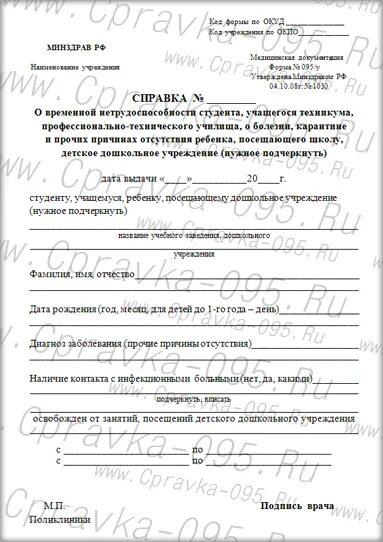 Код формы по ОКУД
Код учреждения по ОКПО
МИНЗДРАВ РФ
Медицинская документация
Наименование учреждения
Форма № 095/у
Утверждена Минздравом РФ
04.10.08г. №1030
СПРАВКА №
О временной нетрудоспособности студента, учащегося техникума,
профессионально-технического училища, о болезни, карантине
и прочих причинах отсутствия ребенка, посещающего школу,
детское дошкольное учреждение (нужное подчеркнуть)
дата выдачи «___» __________ 20____г.
студенту, учащемуся, ребенку, посещающему дошкольное учреждение
(нужное подчеркнуть)
название учебного заведения, дошкольного
учреждения
Фамилия, имя, отчество
Дата рождения (год, месяц, для детей до 1-го года – день)
Диагноз заболевания (прочие причины отсутствия)
Наличие контакта с инфекционными больными (нет, да, какими)
подчеркнуть, вписать
освобожден от занятий, посещений детского дошкольного учреждения
с ____________________ по ____________________
с ____________________ по ____________________
М.П.
Подпись врача
Поликлиники
www.Cpravka-095.Ru